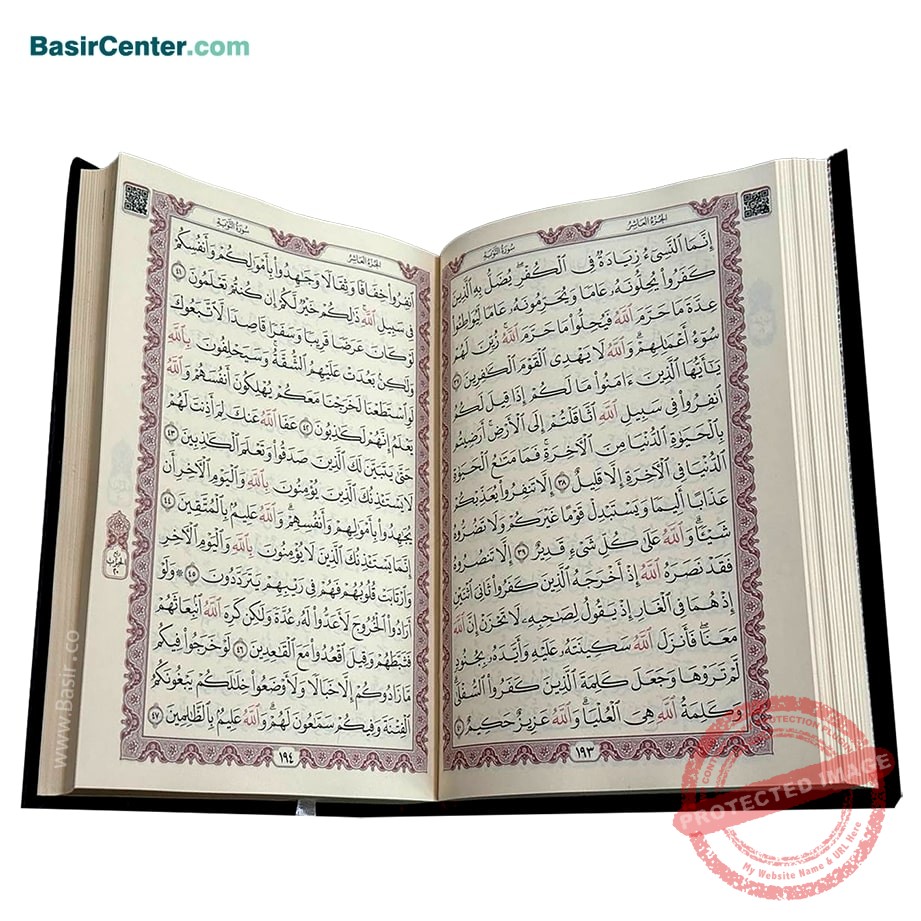 BasirCenter.com
الجزء العاشر
سورة التوبة
إِنَّمَا ٱلنَّسِىٓءُ زِيَادَةٌ فِى ٱلْكُفْرِ يُضَلُّ بِهِ ٱلَّذِينَ
كَفَرُوا۟ يُحِلُّونَهُۥ عَامًا وَيُحَرِّمُونَهُۥ عَامًا لِّيُوَاطِـُٔوا۟
عِدَّةَ مَا حَرَّمَ ٱللَّهُ فَيُحِلُّوا۟ مَا حَرَّمَ ٱللَّهُ زُيِّنَ لَهُمْ
سُوٓءُ أَعْمَـٰلِهِمْ وَٱللَّهُ لَا يَهْدِى ٱلْقَوْمَ ٱلْكَـٰفِرِينَ ٣٧
يَـٰٓأَيُّهَا ٱلَّذِينَ ءَامَنُوا۟ مَا لَكُمْ إِذَا قِيلَ لَكُمُ
ٱنفِرُوا۟ فِى سَبِيلِ ٱللَّهِ ٱثَّاقَلْتُمْ إِلَى ٱلْأَرْضِ أَرَضِيتُم
بِٱلْحَيَوٰةِ ٱلدُّنْيَا مِنَ ٱلْـَٔاخِرَةِ فَمَا مَتَـٰعُ ٱلْحَيَوٰةِ
ٱلدُّنْيَا فِى ٱلْـَٔاخِرَةِ إِلَّا قَلِيلٌ ٣٨ إِلَّا تَنفِرُوا۟ يُعَذِّبْكُمْ
عَذَابًا أَلِيمًا وَيَسْتَبْدِلْ قَوْمًا غَيْرَكُمْ وَلَا تَضُرُّوهُ
شَيْـًٔا وَٱللَّهُ عَلَىٰ كُلِّ شَىْءٍ قَدِيرٌ ٣٩ إِلَّا تَنصُرُوهُ
فَقَدْ نَصَرَهُ ٱللَّهُ إِذْ أَخْرَجَهُ ٱلَّذِينَ كَفَرُوا۟ ثَانِىَ ٱثْنَيْنِ
إِذْ هُمَا فِى ٱلْغَارِ إِذْ يَقُولُ لِصَـٰحِبِهِۦ لَا تَحْزَنْ إِنَّ ٱللَّهَ
مَعَنَا فَأَنزَلَ ٱللَّهُ سَكِينَتَهُۥ عَلَيْهِ وَأَيَّدَهُۥ بِجُنُودٍ
لَّمْ تَرَوْهَا وَجَعَلَ كَلِمَةَ ٱلَّذِينَ كَفَرُوا۟ ٱلسُّفْلَىٰ
وَكَلِمَةُ ٱللَّهِ هِىَ ٱلْعُلْيَا وَٱللَّهُ عَزِيزٌ حَكِيمٌ ٤٠
١٩٣
الجزء العاشر
سورة التوبة
ٱنفِرُوا۟ خِفَافًا وَثِقَالًا وَجَـٰهِدُوا۟ بِأَمْوَٰلِكُمْ وَأَنفُسِكُمْ
فِى سَبِيلِ ٱللَّهِ ذَٰلِكُمْ خَيْرٌ لَّكُمْ إِن كُنتُمْ تَعْلَمُونَ ٤١
لَوْ كَانَ عَرَضًا قَرِيبًا وَسَفَرًا قَاصِدًا لَّٱتَّبَعُوكَ
وَلَـٰكِنۢ بَعُدَتْ عَلَيْهِمُ ٱلشُّقَّةُ وَسَيَحْلِفُونَ بِٱللَّهِ
لَوِ ٱسْتَطَعْنَا لَخَرَجْنَا مَعَكُمْ يُهْلِكُونَ أَنفُسَهُمْ وَٱللَّهُ
يَعْلَمُ إِنَّهُمْ لَكَـٰذِبُونَ ٤٢ عَفَا ٱللَّهُ عَنكَ لِمَ أَذِنتَ لَهُمْ
حَتَّىٰ يَتَبَيَّنَ لَكَ ٱلَّذِينَ صَدَقُوا۟ وَتَعْلَمَ ٱلْكَـٰذِبِينَ ٤٣
لَا يَسْتَـْٔذِنُكَ ٱلَّذِينَ يُؤْمِنُونَ بِٱللَّهِ وَٱلْيَوْمِ ٱلْـَٔاخِرِ أَن
يُجَـٰهِدُوا۟ بِأَمْوَٰلِهِمْ وَأَنفُسِهِمْ وَٱللَّهُ عَلِيمٌۢ بِٱلْمُتَّقِينَ ٤٤
إِنَّمَا يَسْتَـْٔذِنُكَ ٱلَّذِينَ لَا يُؤْمِنُونَ بِٱللَّهِ وَٱلْيَوْمِ ٱلْـَٔاخِرِ
وَٱرْتَابَتْ قُلُوبُهُمْ فَهُمْ فِى رَيْبِهِمْ يَتَرَدَّدُونَ ٤٥ ۞ وَلَوْ
أَرَادُوا۟ ٱلْخُرُوجَ لَأَعَدُّوا۟ لَهُۥ عُدَّةً وَلَـٰكِن كَرِهَ ٱللَّهُ ٱنۢبِعَاثَهُمْ
فَثَبَّطَهُمْ وَقِيلَ ٱقْعُدُوا۟ مَعَ ٱلْقَـٰعِدِينَ ٤٦ لَوْ خَرَجُوا۟ فِيكُم
مَّا زَادُوكُمْ إِلَّا خَبَالًا وَلَأَوْضَعُوا۟ خِلَـٰلَكُمْ يَبْغُونَكُمُ
ٱلْفِتْنَةَ وَفِيكُمْ سَمَّـٰعُونَ لَهُمْ وَٱللَّهُ عَلِيمٌۢ بِٱلظَّـٰلِمِينَ ٤٧
١٩٤
www.Basir.co
PROTECTED IMAGE
My Website Name & URL Here